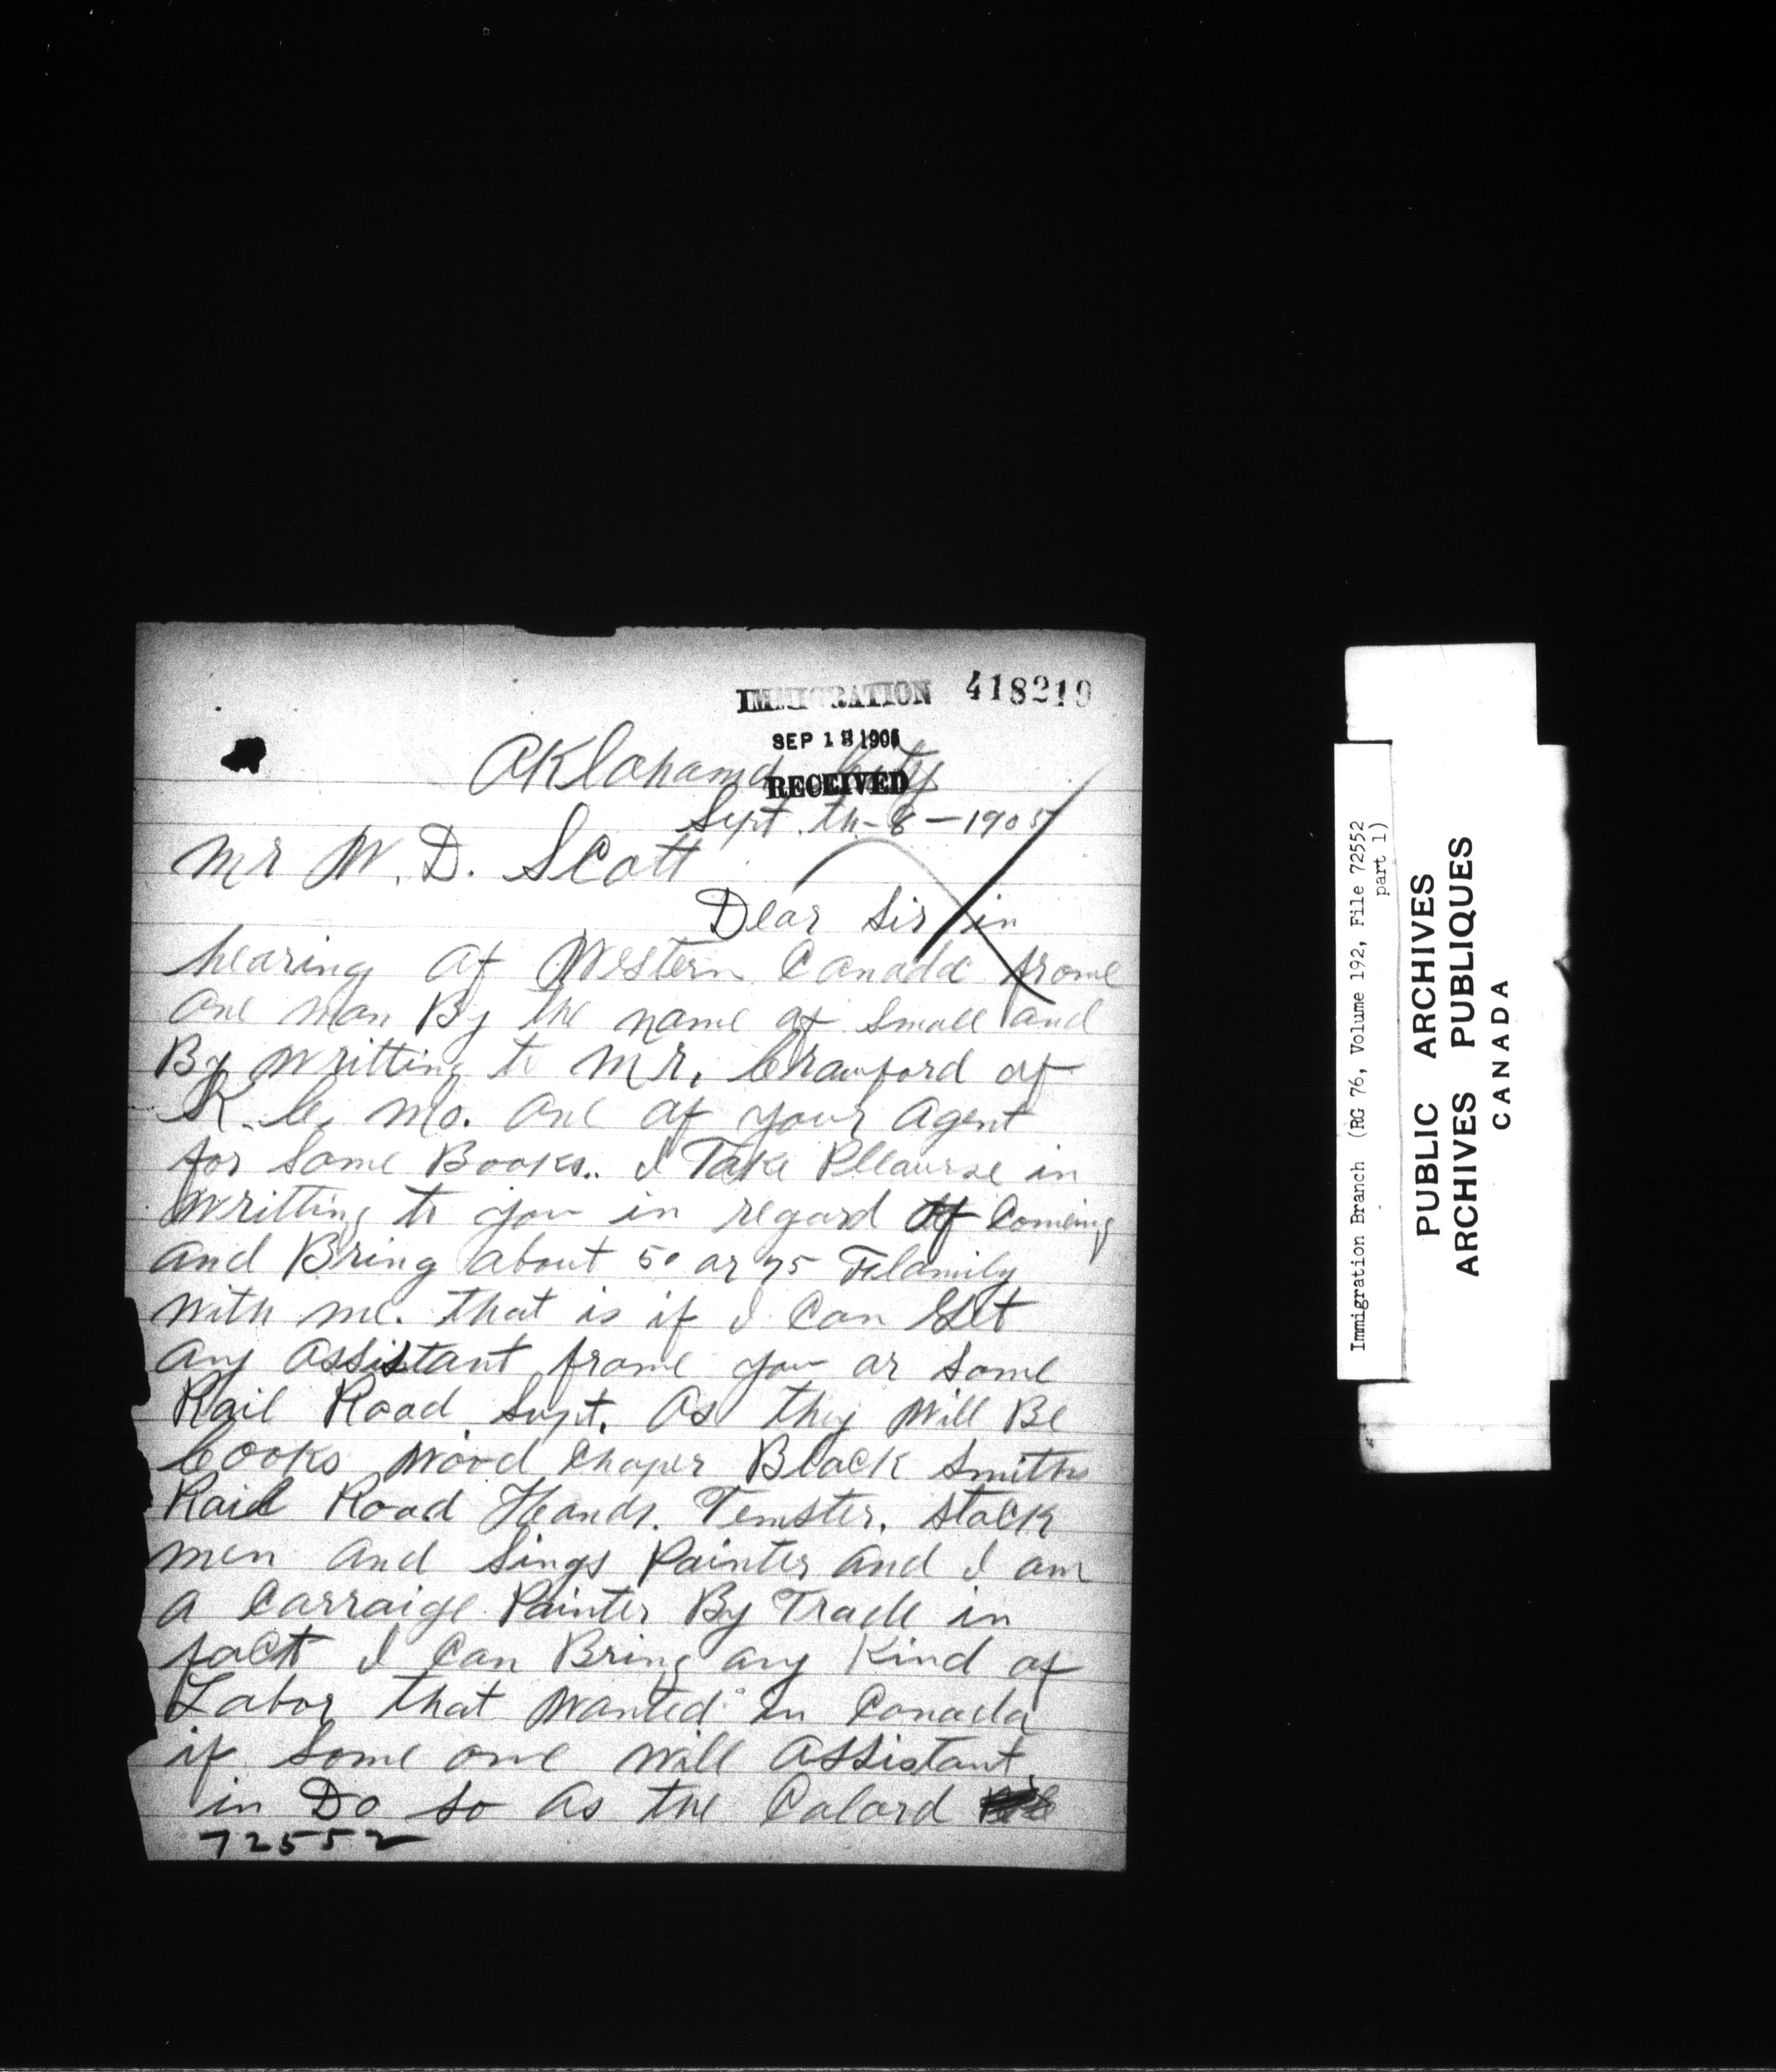 IMMIGRATION 418219
SEP 18 1905
RECEIVED
Oklahama City
Sept. th-8-1905
Mr W. D. Scott
Dear Sir in
hearing of Western Canada frome
one man By the name of Small and
By writting to Mr. Crawford of
K. C. Mo. one of your agent
for Some Books.. I Take Pleaurse in
writting to you in regard of Comeing
and Bring about 50 or 75 Filamily
with me. that is if I Can Get
any assistant frome you or Some
Rail Road Supt. as they will Be
Cooks Wood Choper Black Smiths
Rail Road Hands. Temster. Stock
men and Sings Painter and I am
a Carraige Painter By Trade in
fact I Can Bring any Kind of
Labor that Wanted in Canada
if Some one will assistant
in Do so as the Colard
72552
Immigration Branch (RG 76, Volume 192, File 72552
part 1)
PUBLIC ARCHIVES
ARCHIVES PUBLIQUES
CANADA